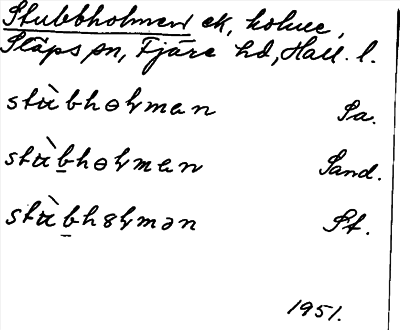 Stubbholmen ek, holme,
Släps sn, Fjäre hd, Hall. l.
stu̇̀bhɵɫmen Sa.
stu̇̀b̲hɵɫmen Sand.
stu̇̀b̲hȣɫmən St.
1951.